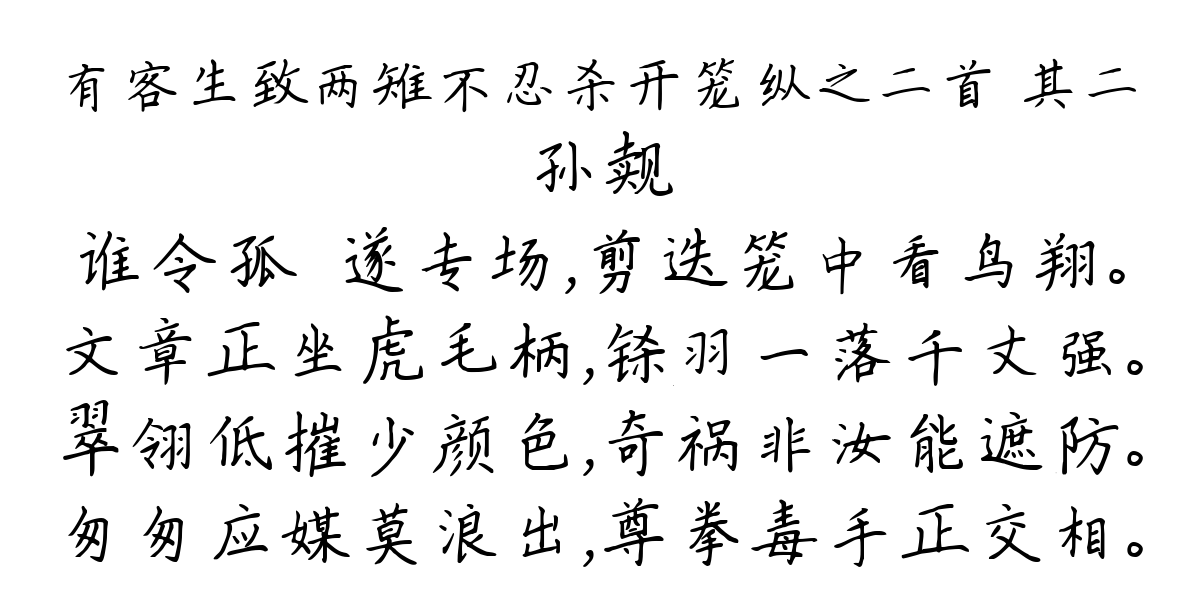 有客生致两雉不忍杀开笼纵之二首 其二
孙觌
谁令孤 遂专场,剪迭笼中看鸟翔。
文章正坐虎毛柄,铩羽一落千丈强。
翠翎低摧少颜色,奇祸非汝能遮防。
匆匆应媒莫浪出,尊拳毒手正交相。